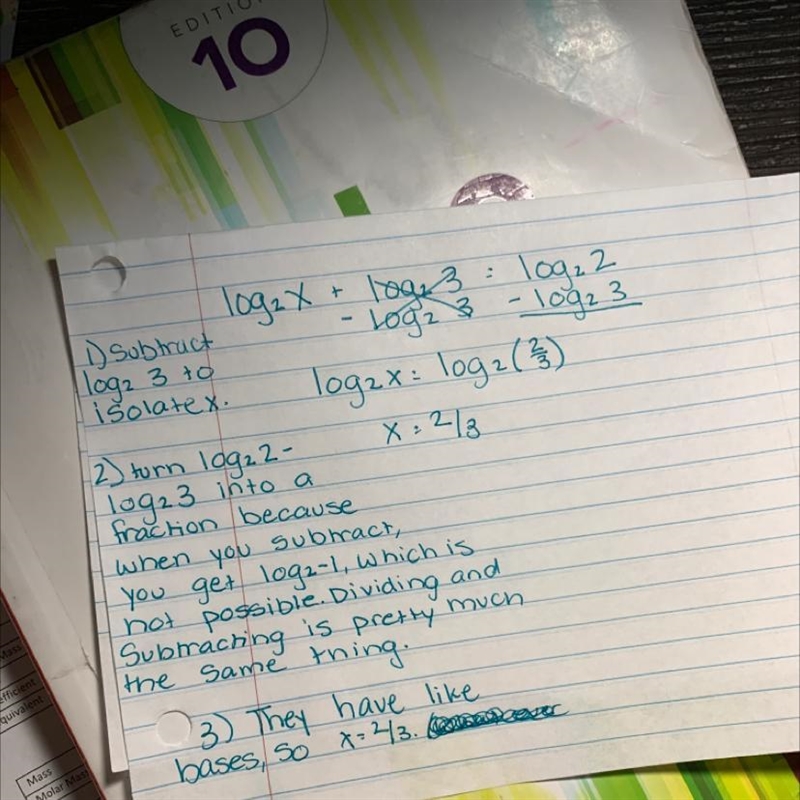 EDITIO
10
log₂x + log₂3 = log₂2
- log₂3 - log₂3
1) Subtract
log₂ 3 to
isolate x.
log₂x = log₂(2/3)
x = 2/3
2) turn log₂2 -
log₂3 into a
fraction because
when you subtract,
you get log₂-1, which is
not possible. Dividing and
Subtracting is pretty much
the same thing.
3) They have like
bases, so x = 2/3.
Mass
efficient
quivalent
Mass
Molar Mass